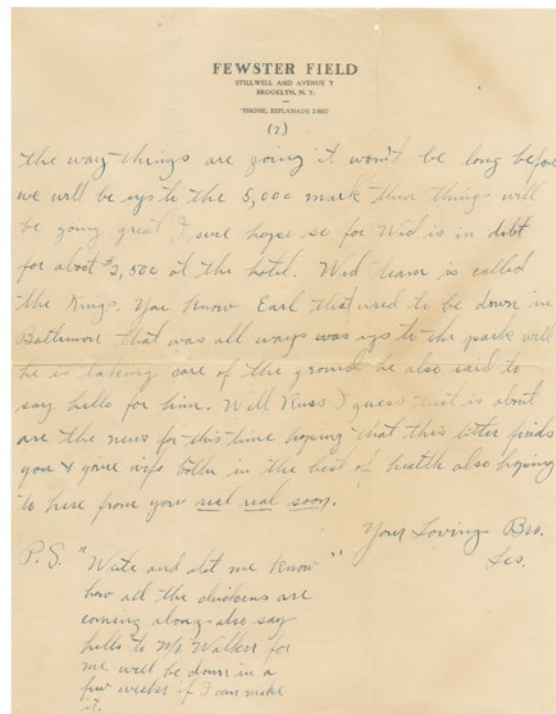 FEWSTER FIELD
STILLWELL AND AVENUE Y
BROOKLYN, N. Y.
'PHONE, ESPLANADE
(2)
the way things are going it won't be long before
we will be up to the 5,000 mark then things will
be going great I sure hope so for Wid is in debt
for about $2,500 at the hotel. Wid team is called
the Kings. You know Earl that used to be down in
Baltimore that was all ways was up to the park will
he is taking care of the ground he also said to
say hello for him. Well Russ I guess that is about
are the news for this time hoping that this letter finds
you & your wife both in the best of health also hoping
to here from you real real soon.
Your Loving Bro.
Les.
P.S. "Write and let me know"
how all the chickens are
coming along also say
hello to Mr. Walker for
me will be down in a
few weeks if I can make
it.